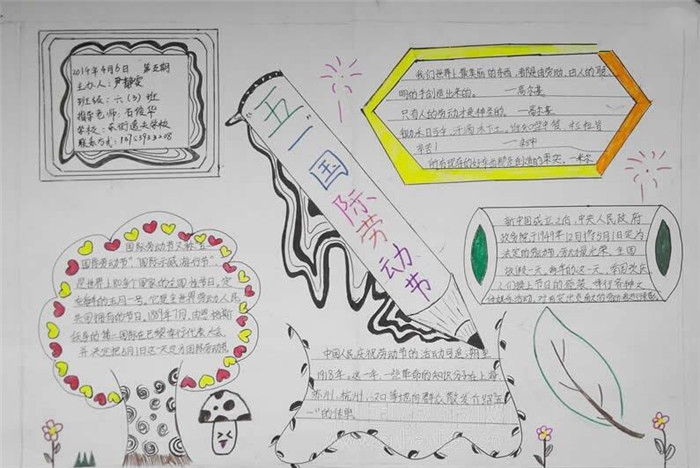 2014年4月6日 第五期
主办人:尹静雯
班级:六(3)班
指导老师:石俊华
学校:东街逸夫学校
联系方式:
五一国际劳动节
我们世界上最美丽的东西,都是由劳动、由人的聪
明的手创造出来的。 ——高尔基
只有人的劳动才是神圣的。 ——高尔基
——谚语
国际劳动节又称"五一
国际劳动节""国际示威游行节",
是世界上80多个国家的全国性节日,定
在每年的五月一号。它是全世界劳动人民
共同拥有的节日。1889年7月,由恩格斯
领导的第二国际在巴黎举行代表大会,
并决定把5月1日这一天定为国际劳动节
新中国成立之后,中央人民政府
政务院于1949年12月将5月1日定为
法定的劳动节,
放假一天。每年的这一天,全国欢庆
人们换上节日的盛装,举行各种文
中国人民庆祝劳动节的活动可追溯至
1918年。这一年,一些革命的知识分子在上海、
苏州、杭州、汉口等地向群众散发介绍"五
一"的传单。